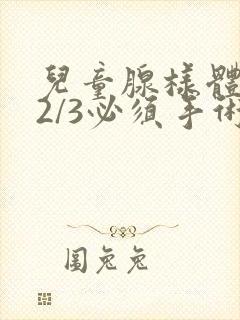 兒童腺樣體
2/3必須手術
圖兔兔